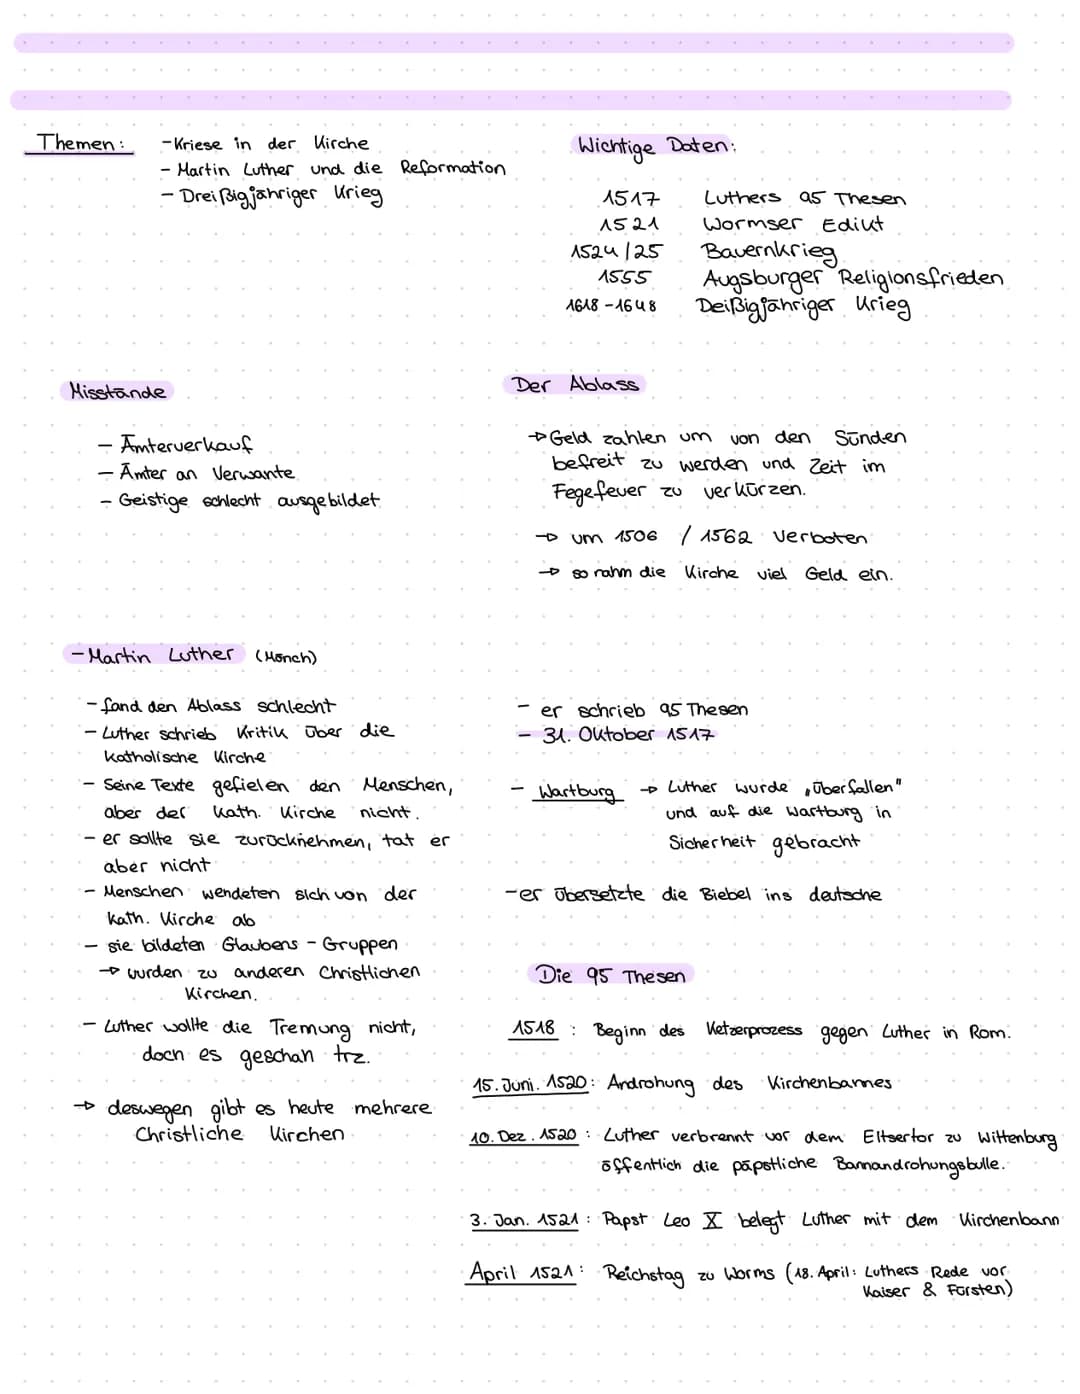 Themen:
- Kriese in der Kirche
- Martin Luther und die Reformation
- Dreißigjähriger Krieg
Wichtige Daten:
1517 Luthers 95 Thesen
1521 Wormser Edikt
1524/25 Bauernkrieg
1555 Augsburger Religionsfrieden
1618-1648 Deißigjähriger Krieg
Misstände
- Ämterverkauf
- Ämter an Verwante
- Geistige schlecht ausgebildet
Der Ablass
→ Geld zahlen um von den Sünden
befreit zu werden und Zeit im
Fegefeuer zu verkürzen.
→ um 1506 / 1562 verboten
→ so nahm die Kirche viel Geld ein.
- Martin Luther (Mönch)
- fand den Ablass schlecht
- Luther schrieb Kritik über die
katholische Kirche
- Seine Texte gefielen den Menschen,
aber der kath. Kirche nicht.
- er sollte sie zurücknehmen, tat er
aber nicht
- Menschen wendeten sich von der
kath. Kirche ab
- sie bildeten Glaubens-Gruppen
→ wurden zu anderen Christlichen
Kirchen.
- Luther wollte die Trennung nicht,
doch es geschah trz.
→ deswegen gibt es heute mehrere
Christliche Kirchen
- er schrieb 95 Thesen
- 31. Oktober 1517
- Wartburg → Luther wurde „überfallen"
und auf die Wartburg in
Sicherheit gebracht
- er übersetzte die Biebel ins deutsche
Die 95 Thesen
1518 : Beginn des Ketzerprozess gegen Luther in Rom.
15. Juni. 1520: Androhung des Kirchenbannes
10. Dez. 1520 : Luther verbrennt vor dem Eltsertor zu Wittenburg
öffentlich die päpstliche Bannandrohungsbulle.
3. Jan. 1521 : Papst Leo X belegt Luther mit dem Kirchenbann
April 1521: Reichstag zu Worms (18. April: Luthers Rede vor
Kaiser & Fürsten)